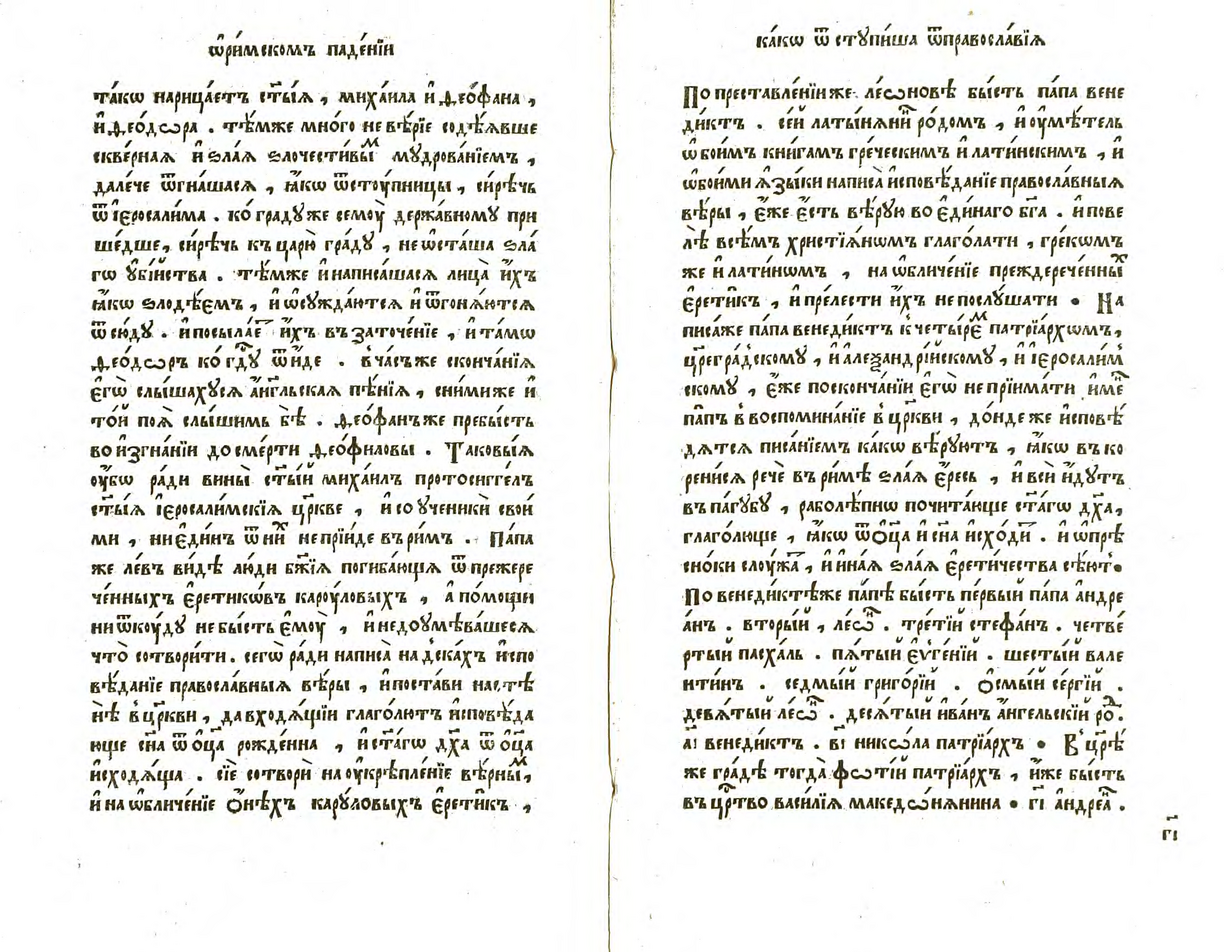 ѡ҆ри́мскомъ паде́нїи
та́кѡ нарица́етъ ст҃ы́ѧ , миха́ила и҆ ѳео́фана ,
и҆ ѳео́дѡра . тѣ́мже мно́го невѣ́рїе содѣ́ѧвше
скве́рнаѧ и҆ ѕла́ѧ ѕлочести́вымⷨ мꙋдрова́нїемъ ,
дале́че ѿгна́шасѧ , ꙗ҆́кѡ ѿстоу́пницы , си́рѣчь
ѿ і҆еросали́ма . ко гра́дꙋже семоу̀ держа́вномꙋ при
ше́дше , си́рѣчь къ царю̀ гра́дꙋ , не ѡ҆ста́ша ѕла́
гѡ ꙋ҆бі́йства . тѣ́мже и҆ написа́шасѧ лица̀ и҆́хъ
ꙗ҆́кѡ ѕлодѣ́емъ , и҆ ѡ҆сꙋжда́ютсѧ и҆ ѿгонѧ́ютсѧ
ѿсю́дꙋ . и҆ посыла́еⷮ и҆́хъ въ заточе́нїе , и҆ та́мѡ
ѳео́дѡръ ко гдⷭ҇ꙋ ѿи́де . в ча́съже сконча́нїѧ
є҆гѡ̀ слы́шахꙋсѧ а҆́нг҃льскаѧ пѣ́нїѧ , сни́миже и҆
то́й поѧ̀ слы́шимь бѣ̀ . ѳео́фанъже пребы́сть
во и҆згна́нїи до сме́рти ѳео́филовы . Таковы́ѧ
оу҆́бѡ ра́ди вины̀ ст҃ы́й миха́илъ протоси́ггелъ
ст҃ы́ѧ і҆еросали́мскїѧ цр҃кве , и҆ со ученикѝ свои́
ми , ни є҆ди́нъ ѿ ни́ⷯ не прїи́де въ ри́мъ . Па́па
же ле́въ ви́дѣ лю́ди бж҃їѧ погиба́ющѧ ѿ прежере
че́нныхъ є҆ретикѡ́въ кароу́ловыхъ , а҆ по́мощи
ни ѿкоу́дꙋ не бы́сть є҆моу̀ , и҆ недоумѣва́шесѧ
что̀ сотвори́ти . сегѡ̀ ра́ди написа̀ на дска́хъ и҆спо
вѣ́данїе правосла́вныѧ вѣ́ры , и҆ поста́ви на стѣ
нѣ̀ в цр҃кви , да входѧ́щїи глаго́лютъ и҆сповѣ́да
юще сн҃а ѿ ѻ҆ц҃а̀ рожде́нна , и҆ ст҃а́гѡ дх҃а ѿ ѻ҆ц҃а̀
и҆сходѧ́ща . сїѐ сотворѝ на оу҆крѣпле́нїе вѣ́рныⷨ ,
и҆ на ѡ҆бличе́нїе ѻ҆́нѣхъ карꙋ́ловыхъ є҆рети́къ ,
ка́кѡ ѿстꙋпи́ша ѿправосла́вїѧ
По преставле́нїи же лео́новѣ бы́сть па́па вене
ди́ктъ . се́й латы́нѧни́нⷩ ро́домъ , и҆ оу҆мѣ́тель
ѡ҆бои́мъ кни́гамъ гре́ческимъ и҆ лати́нскимъ , и҆
ѡ҆бои́ми ѧ҆зы́ки написа̀ и҆сповѣ́данїе правосла́вныѧ
вѣ́ры , є҆́же є҆́сть вѣ́рꙋю во є҆ди́наго бг҃а . и҆ пове
лѣ̀ всѣ́мъ христїѧ́нѡмъ глаго́лати , гре́кѡмъ
же и҆ лати́нѡмъ , на ѡ҆бличе́нїе преждерече́нныⷯ
є҆рети́къ , и҆ пре́лести и҆́хъ не послꙋ́шати . На
писа́же па́па венеди́ктъ к четы́реⷨ патрїа́рхѡмъ ,
цр҃егра́дскомꙋ , и҆ алеѯандрі́йскомꙋ , и҆ і҆еросали́мⷨ
скомꙋ , є҆́же по сконча́нїи є҆гѡ̀ не прїима́ти и҆́менⷩ
па́пъ в воспомина́нїе в цр҃кви , до́ндеже и҆сповѣ́
дѧтсѧ писа́нїемъ ка́кѡ вѣ́рꙋютъ , ꙗ҆́кѡ въ ко
рени́сѧ речѐ въ ри́мѣ ѕла́ѧ є҆́ресь , и҆ всѝ и҆дꙋ́тъ
въ па́гꙋбꙋ , раболѣ́пнѡ почита́юще ст҃а́гѡ дх҃а ,
глаго́люще , ꙗ҆́кѡ ѿ ѻ҆ц҃а̀ и҆ сн҃а и҆схо́диⷮ . и҆ ѡ҆прѣ
сно́ки слоу́жаⷮ , и҆ и҆на́ѧ ѕла́ѧ є҆рети́чества сѣ́ютъ .
По венеди́ктѣже па́пѣ бы́сть пе́рвый па́па а҆ндре
а́нъ . вторы́й , лео́нⷩ . тре́тїй стефа́нъ . четве́
ртый пасха́ль . пѧ́тый є҆ѵге́нїй . шесты́й вале
нти́нъ . седмы́й григо́рїй . ѻ҆смы́й се́ргїй .
девѧ́тый лео́нⷩ . десѧ́тый и҆ва́нъ а҆́нгельскїй роⷣ .
а҃і венеди́ктъ . в҃і нико́ла патрїа́рхъ . В цр҃ѣ
же гра́дѣ тогда̀ фѡ́тїй патрїа́рхъ , и҆́же бы́сть
въ црⷭ҇тво васи́лїѧ македо́нѧнина . г҃і а҆ндреаⷩ҇ .
г҃і